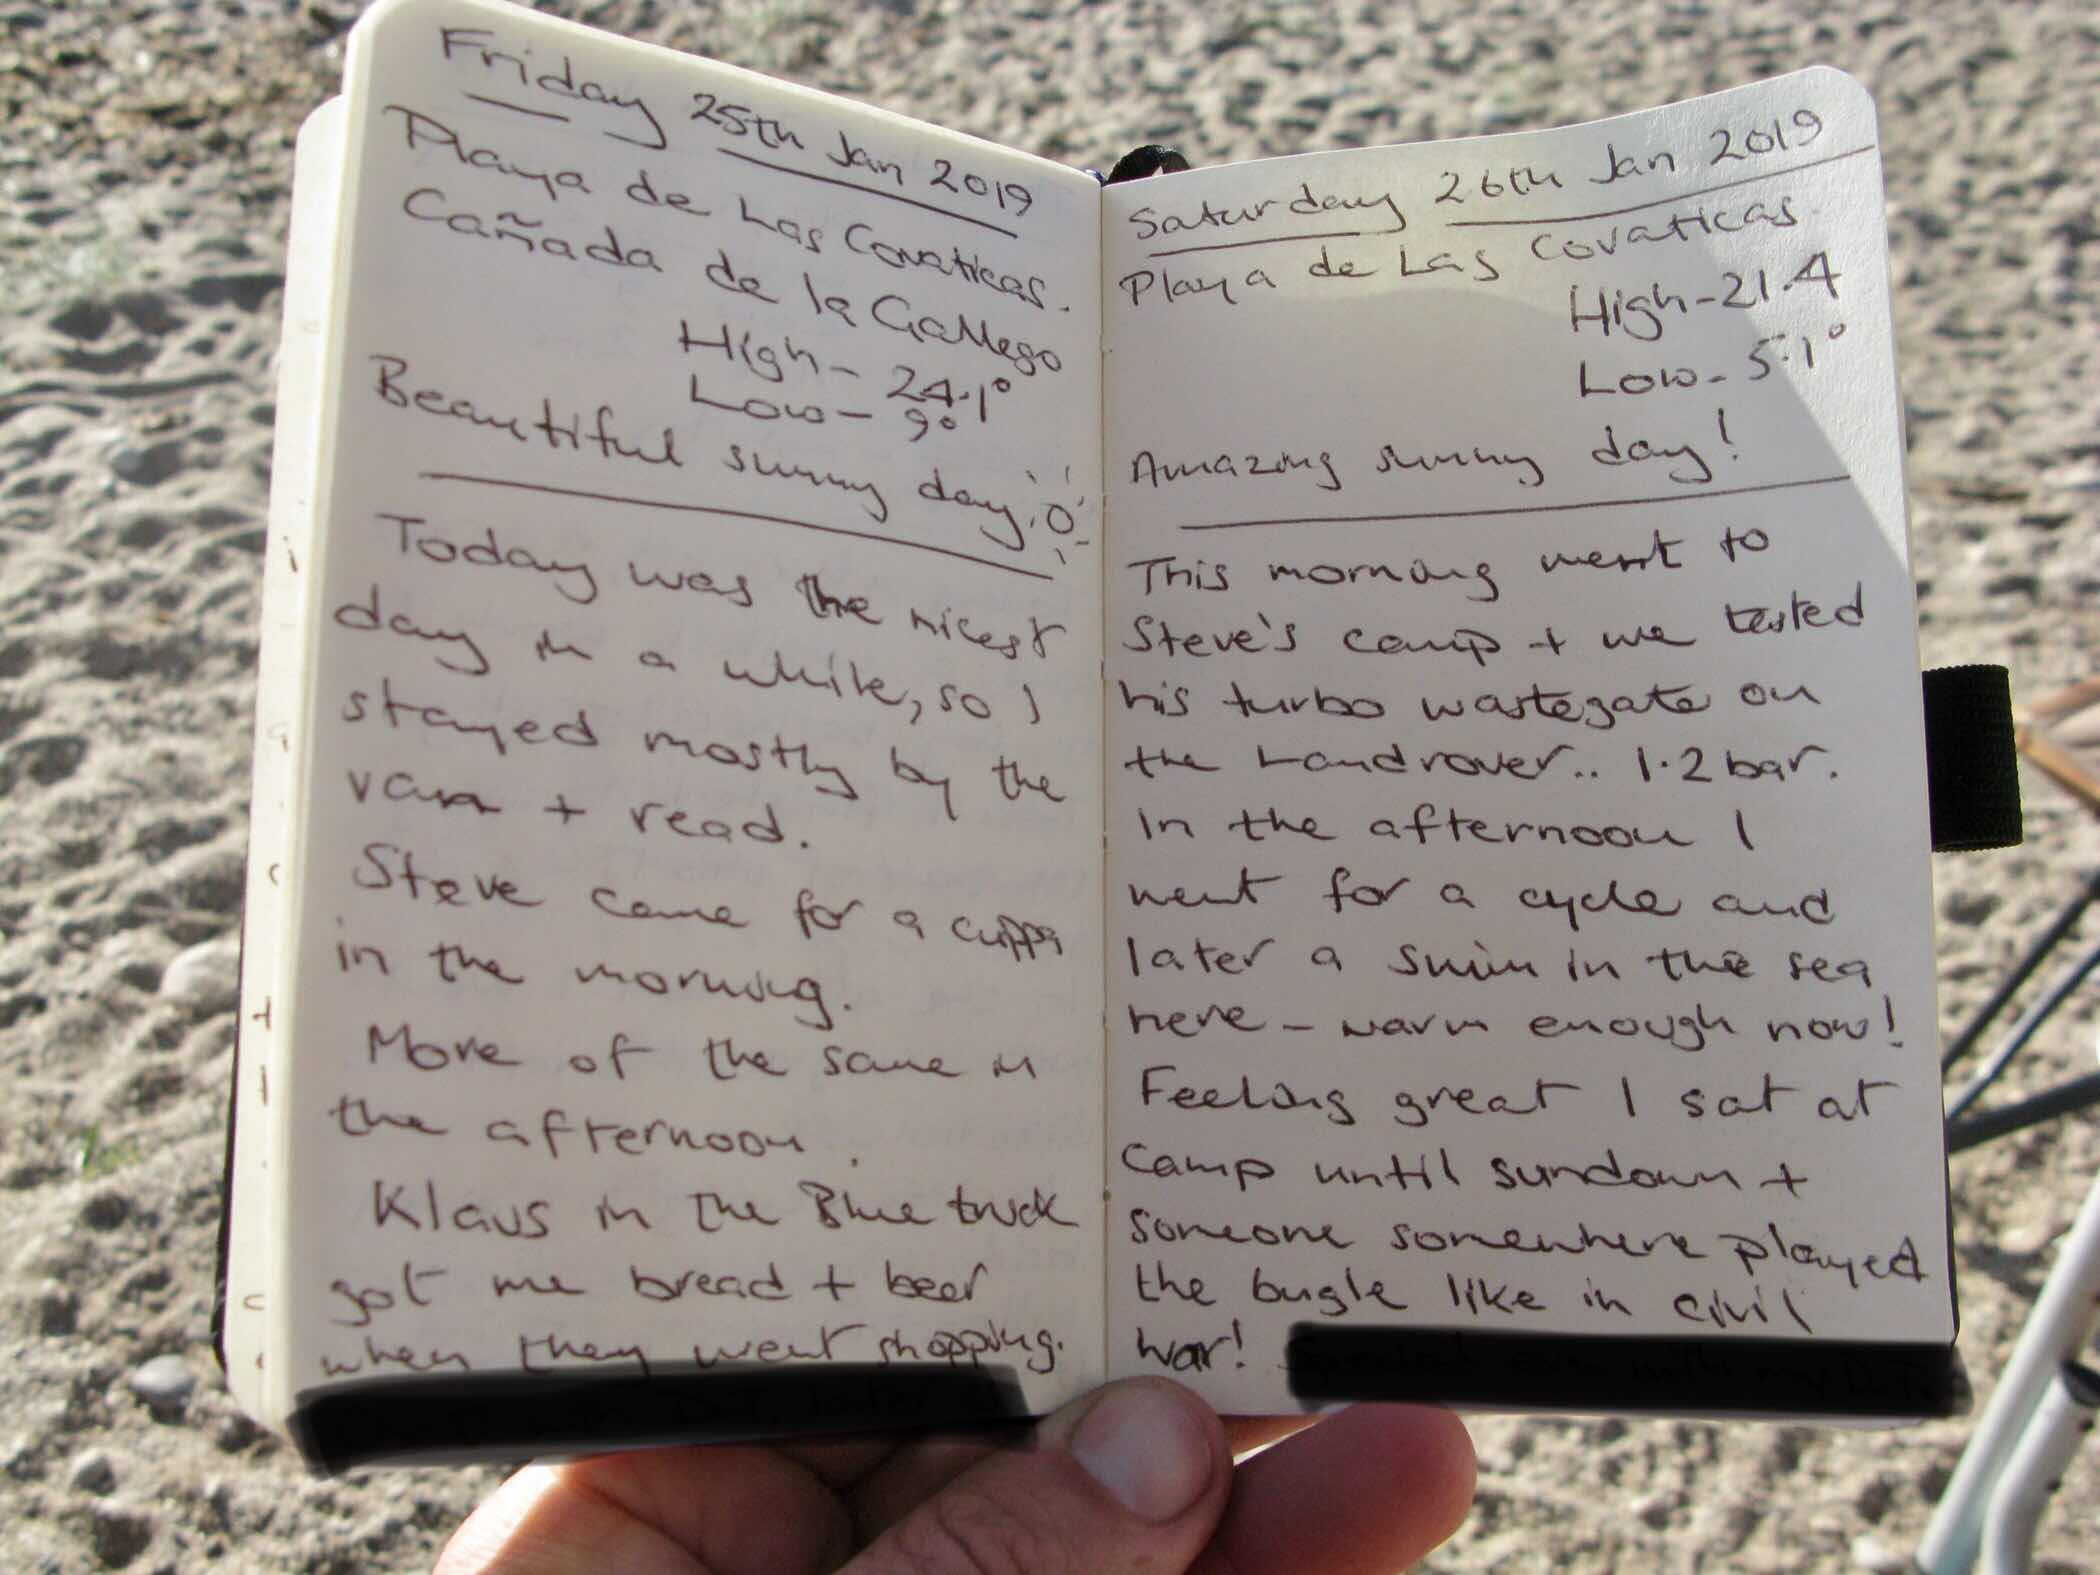 Friday 25th Jan 2019
Playa de Las Covaticas.
Cañada de la Gallego
High - 24.1°
Low - 9°
Beautiful sunny day.
Today was the nicest
day in a while, so I
stayed mostly by the
van + read.
Steve came for a cuppa
in the morning.
More of the same in
the afternoon.
Klaus in the Blue truck
got me bread + beer
when they went shopping.
Saturday 26th Jan 2019
Playa de Las Covaticas.
High - 21.4
Low - 5.1°
Amazing sunny day!
This morning went to
Steve's camp + we tested
his turbo wastegate on
the Landrover.. 1.2 bar.
In the afternoon I
went for a cycle and
later a swim in the sea
here - warm enough now!
Feeling great I sat at
camp until sundown +
someone somewhere played
the bugle like in civil
war!